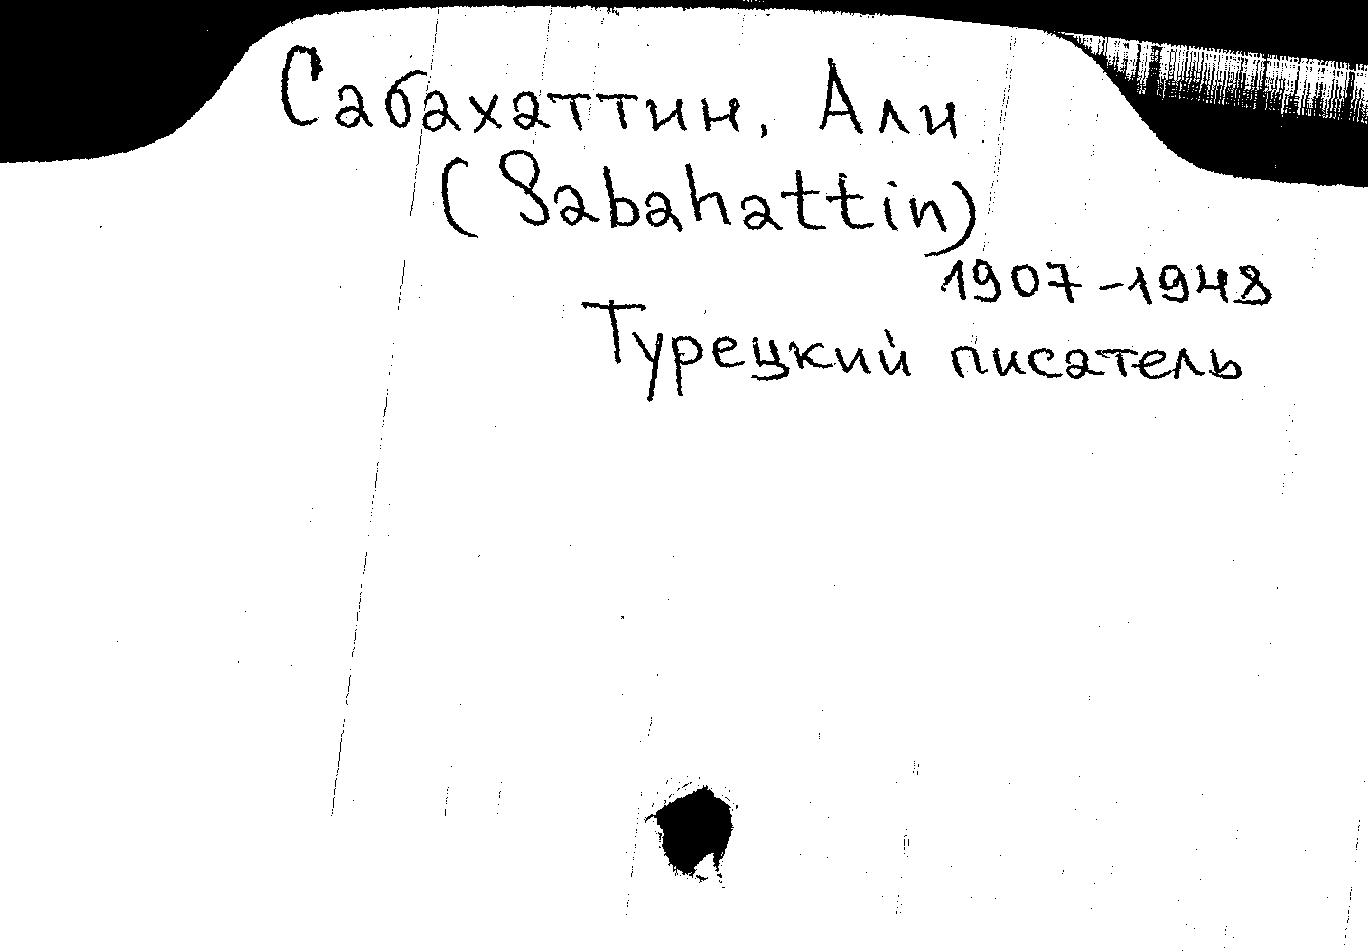 Сабахаттин, Али
(Sabahattin)
1907-1948
Турецкий писатель